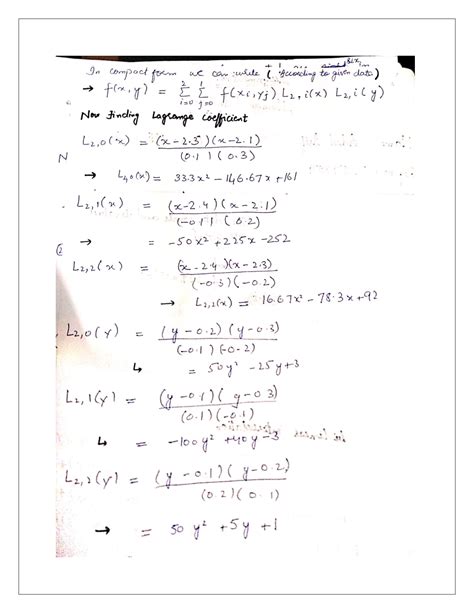 In compact form we can write ( According to given data)
→ f(x,y) = 2∑i=0 2∑j=0 f(xi,yj) L2,i(x) L2,i(y)
Now Finding Lagrange Coefficient
L2,0(x) = (x-2.3)(x-2.1) / (0.1)(0.3)
N
→ L2,0(x) = 33.3x² - 146.67x + 161
L2,1(x) = (x-2.4)(x-2.1) / (-0.1)(0.2)
→ = -50x² + 225x - 252
L2,2(x) = (x-2.4)(x-2.3) / (-0.3)(-0.2)
→ L2,2(x) = 16.67x² - 78.3x + 92
L2,0(y) = (y-0.2)(y-0.3) / (-0.1)(-0.2)
↳ = 50y² - 25y + 3
L2,1(y) = (y-0.1)(y-0.3) / (0.1)(-0.1)
↳ = -100y² + 40y - 3
L2,2(y) = (y-0.1)(y-0.2) / (0.2)(0.1)
→ = 50y² + 5y + 1